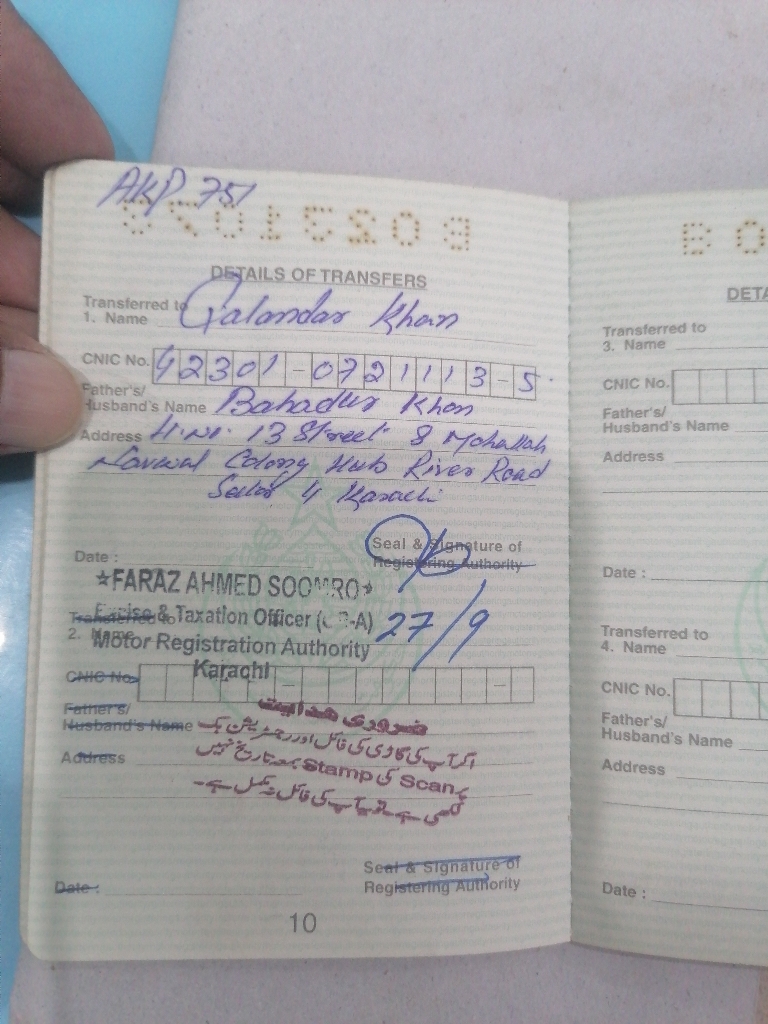 AKP 751
B023107
DETAILS OF TRANSFERS
Transferred to
1. Name Qalandar Khan
CNIC No. 42301-0721113-5
Father's/
Husband's Name Bahadur Khan
Address H.No. 13 Street 8 Mohallah
Colony Hub River Road
4 Karachi
Seal & Signature of
Registering Authority
Date :
★FARAZ AHMED SOOMRO★
Excise & Taxation Officer
27/9
Motor Registration Authority
Karachi
Transferred to
2. Name
CNIC No.
Father's/
Husband's Name
Address
ضروری ہدایت
اگر آپ کی گاڑی کی فائل اور رجسٹریشن بک
پر Scan کی Stamp بمعہ تاریخ نہیں
لگی ہے تو یہ آپ کی فائل نامکمل ہے۔
Seal & Signature of
Registering Authority
Date :
10
B 0
DETA
Transferred to
3. Name
CNIC No.
Father's/
Husband's Name
Address
Date :
Transferred to
4. Name
CNIC No.
Father's/
Husband's Name
Address
Date :